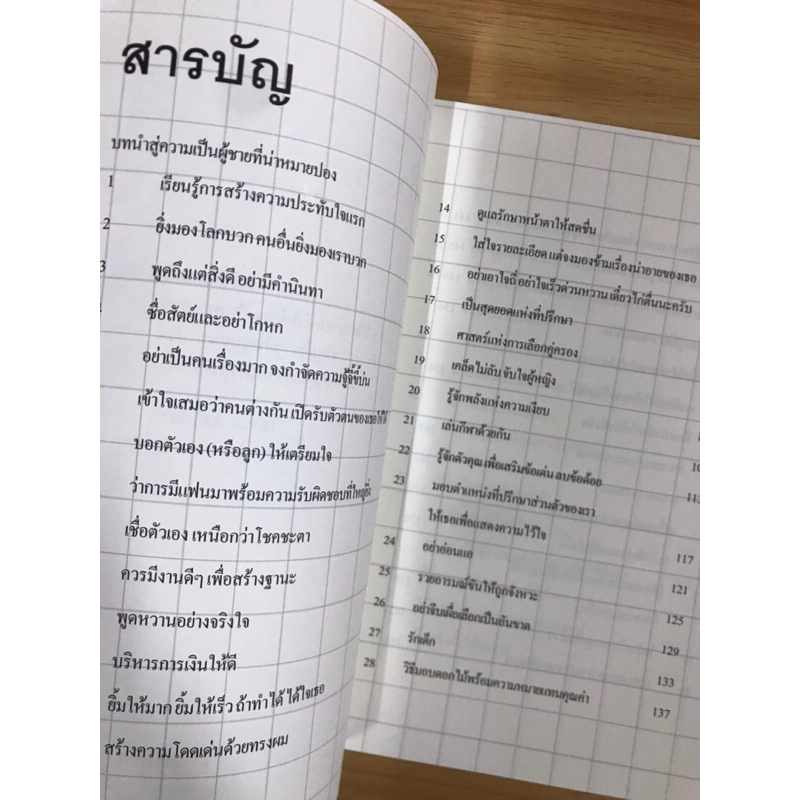 สารบัญ
บทนำสู่ความเป็นผู้ชายที่น่าหมายปอง
1 เรียนรู้การสร้างความประทับใจแรก
2 ยิ่งมองโลกบวก คนอื่นยิ่งมองเราบวก
3 พูดถึงแต่สิ่งดี อย่ามีคำนินทา
ซื่อสัตย์และอย่าโกหก
อย่าเป็นคนเรื่องมาก จงกำจัดความจู้จี้ขี้บ่น
เข้าใจเสมอว่าคนต่างกัน เปิดรับตัวตนของเธอให้ได้
บอกตัวเอง (หรือลูก) ให้เตรียมใจ
ว่าการมีแฟนมาพร้อมความรับผิดชอบที่ใหญ่ยิ่ง
เชื่อตัวเอง เหนือกว่าโชคชะตา
ควรมีงานดีๆ เพื่อสร้างฐานะ
พูดหวานอย่างจริงใจ
บริหารการเงินให้ดี
ยิ้มให้มาก ยิ้มให้เร็ว ถ้าทำได้ ได้ใจเธอ
สร้างความโดดเด่นด้วยทรงผม
14 ดูแลรักษาหน้าตาให้สดชื่น
15 ใส่ใจรายละเอียด แต่จงมองข้ามเรื่องน่าอายของเธอ
16 อย่าเอาใจถี่ อย่าใจเร็วด่วนหวาน เดี๋ยวไก่ตื่นนะครับ
17 เป็นสุดยอดแห่งที่ปรึกษา
18 ศาสตร์แห่งการเลือกคู่ครอง
19 เคล็ดไม่ลับ จับใจผู้หญิง
20 รู้จักพลังแห่งความเงียบ
21 เล่นกีฬาด้วยกัน
22 รู้จักตัวคุณ เพื่อเสริมข้อเด่น ลบข้อด้อย
23 มอบตำแหน่งที่ปรึกษาส่วนตัวของเรา 113
ให้เธอเพื่อแสดงความไว้ใจ
24 อย่าอ่อนแอ 117
25 รวยอารมณ์ขันให้ถูกจังหวะ 121
26 อย่าจีบเผื่อเลือกเป็นอันขาด 125
27 รักเด็ก 129
28 วิธีมอบดอกไม้พร้อมความหมายแทนคุณค่า 133
137